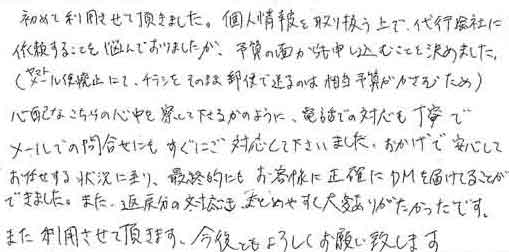 初めて利用させて頂きました。個人情報を取り扱う上で、代行会社に
依頼することも悩んでおりましたが、予算の面から申し込むことを決めました。
(ヤマトメール便廃止にて、チラシをそのまま郵便で送るのは相当予算がかさむため)
心配なこちらの心中を察して下さるかのように、電話での対応も丁寧で
メールでの問合せにもすぐにご対応して下さいました。おかげで安心して
お任せする状況に至り、最終的にもお客様に正確にDMを届けることが
できました。また、返戻分の対応もまとめやすく大変ありがたかったです。
また利用させて頂きます。今後ともよろしくお願い致します